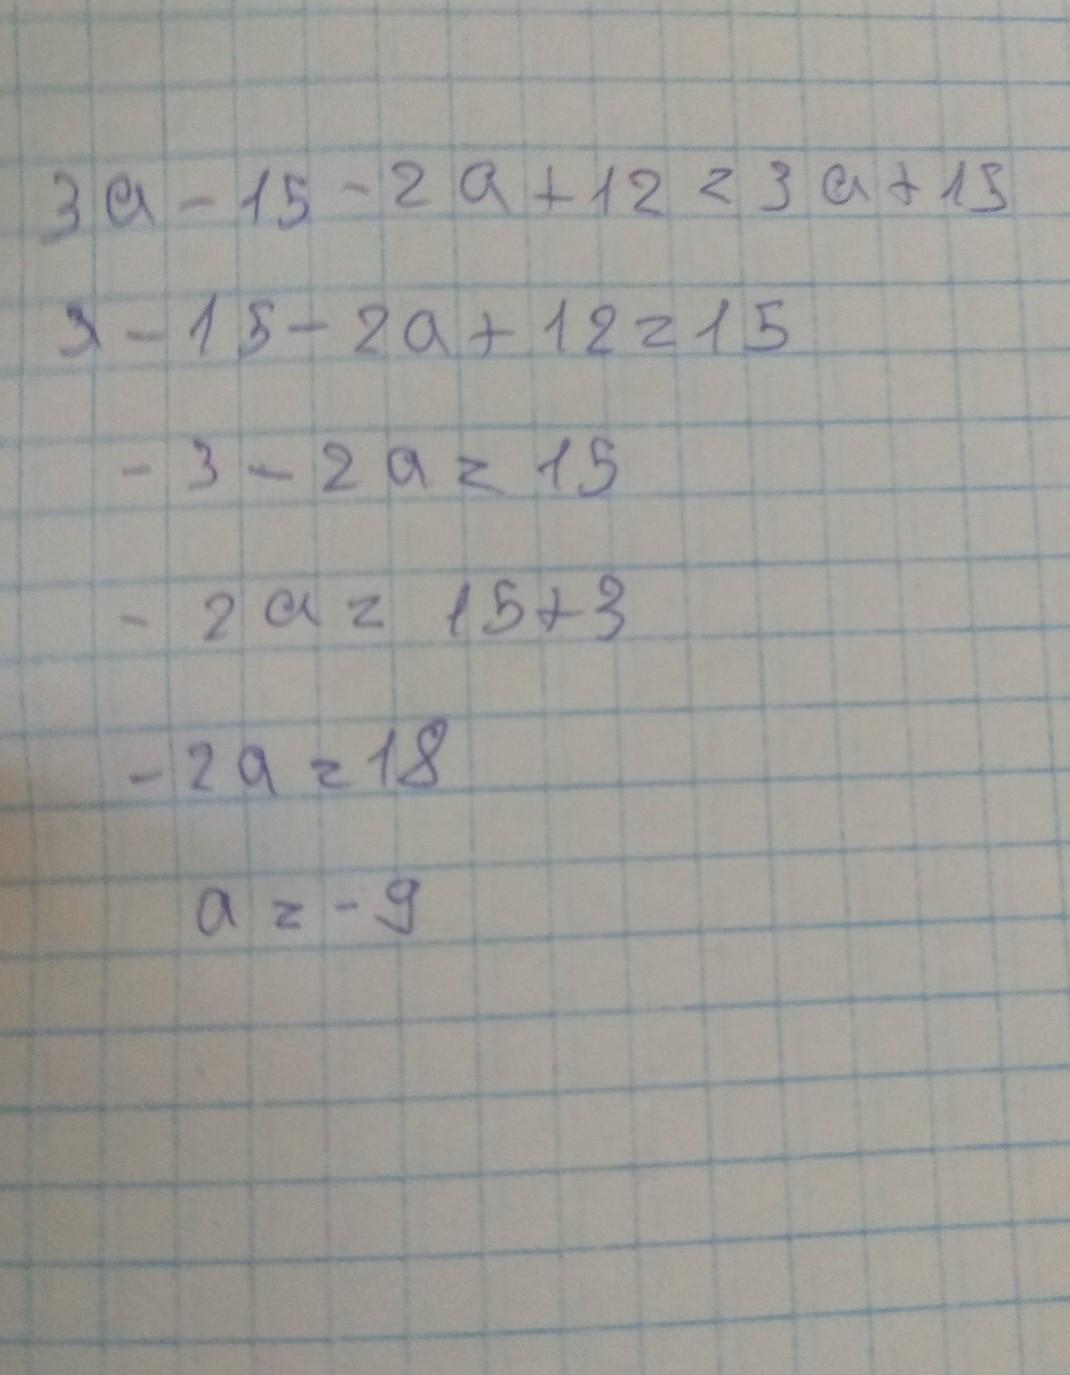 3a - 15 - 2a + 12 = 3a + 15
3 - 15 - 2a + 12 = 15
- 3 - 2a = 15
- 2a = 15 + 3
- 2a = 18
a = - 9